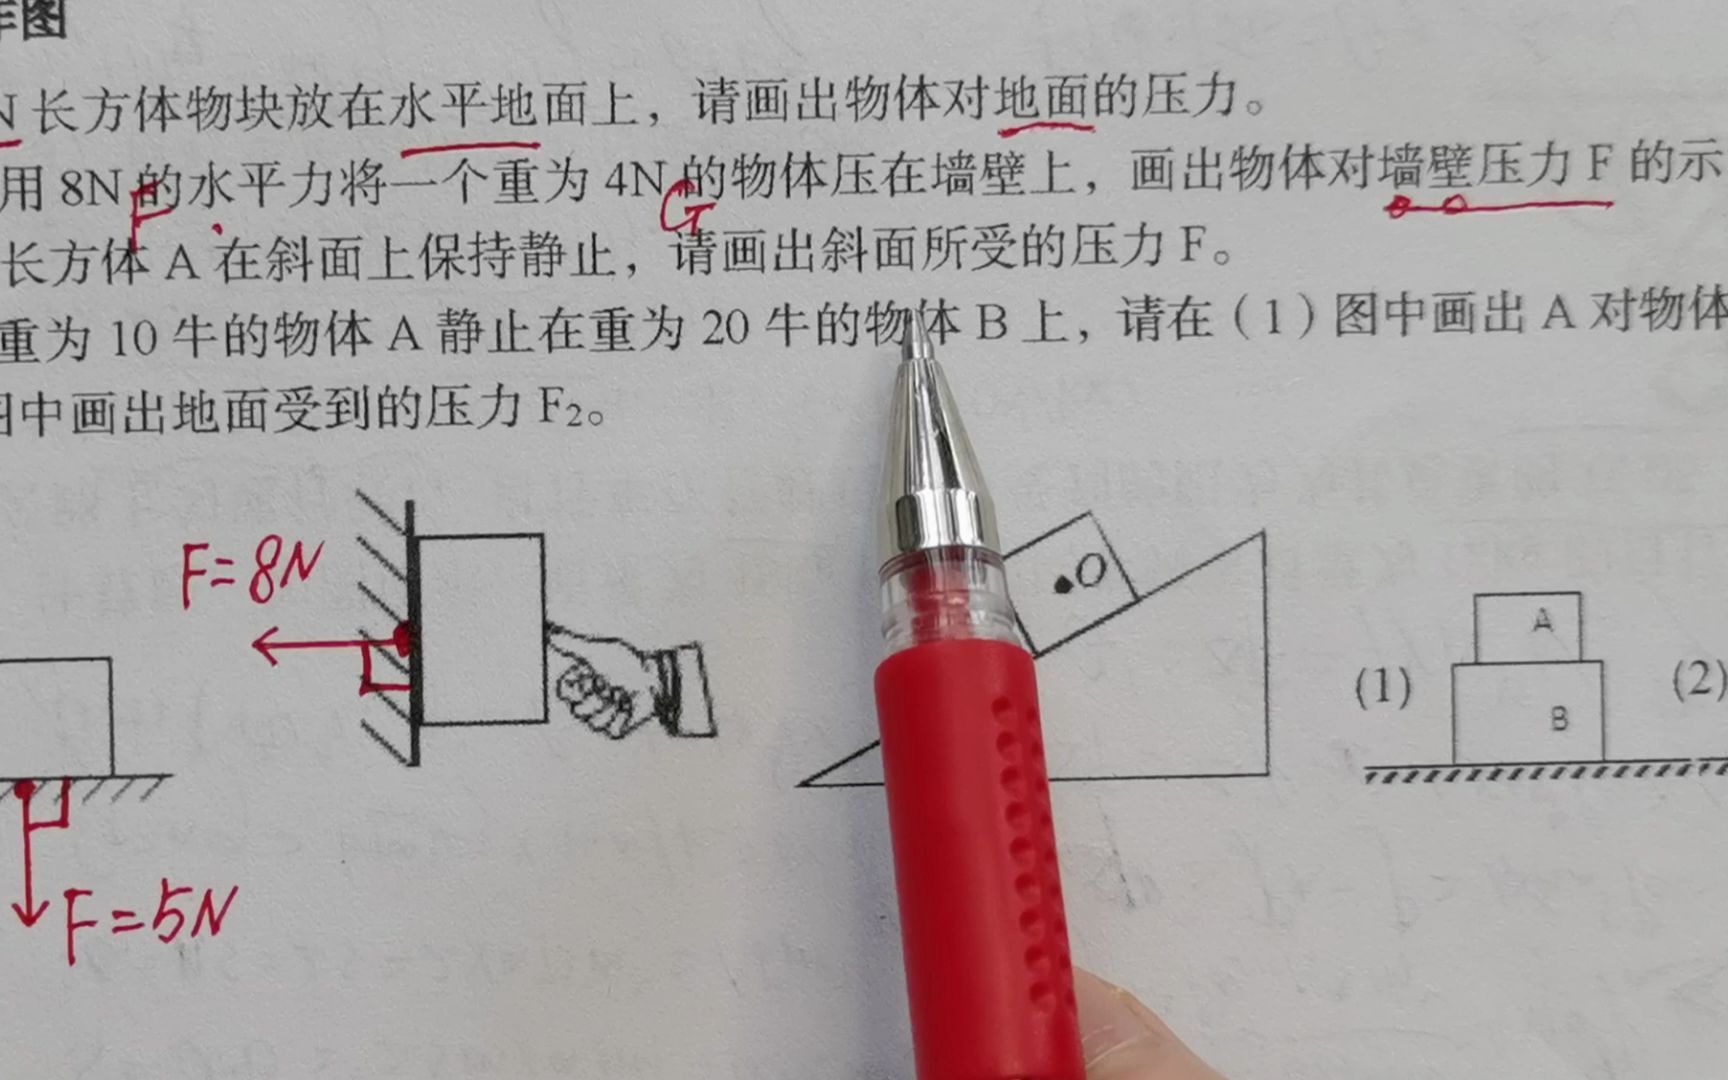 作图
N长方体物块放在水平地面上，请画出物体对地面的压力。
用8N的水平力将一个重为4N的物体压在墙壁上，画出物体对墙壁压力F的示
F
G
长方体A在斜面上保持静止，请画出斜面所受的压力F。
重为10牛的物体A静止在重为20牛的物体B上，请在（1）图中画出A对物体
图中画出地面受到的压力F₂。
F=8N
O
A
(1)
(2)
B
F=5N